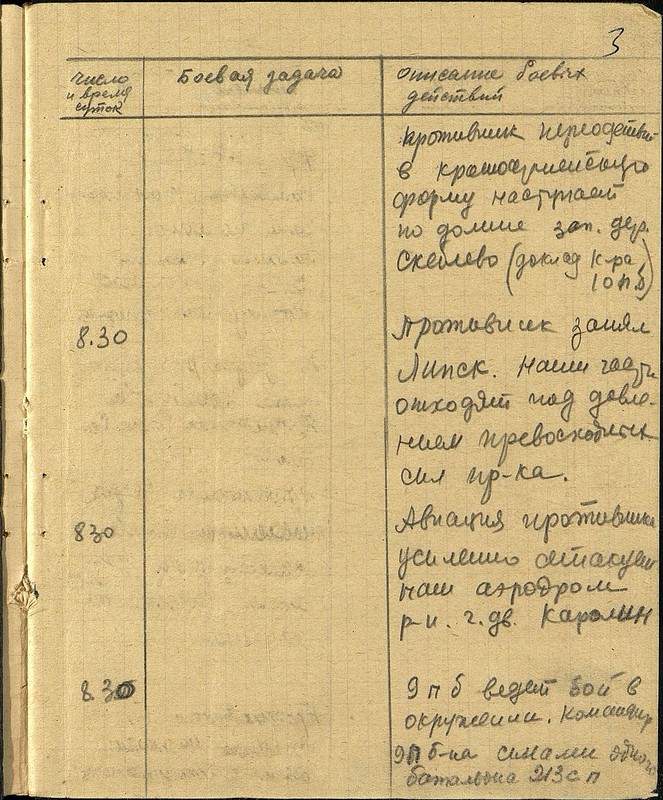 3
Число
и время
суток
Боевая задача
Описание боевых
действий
Противник переодетый
в красноармейскую
форму наступает
по долине зап. дер.
Скеблево (доклад к-ра
10 п б)
8.30
Противник занял
Липск. Наши части
отходят под давле-
нием превосходящих
сил пр-ка.
830
Авиация противника
усиленно атакует
наш аэродром
р-н. г. дв. Каролин
8.35
9 п б ведет бой в
окружении. Командир
9п б-на силами одного
батальона 213 с п